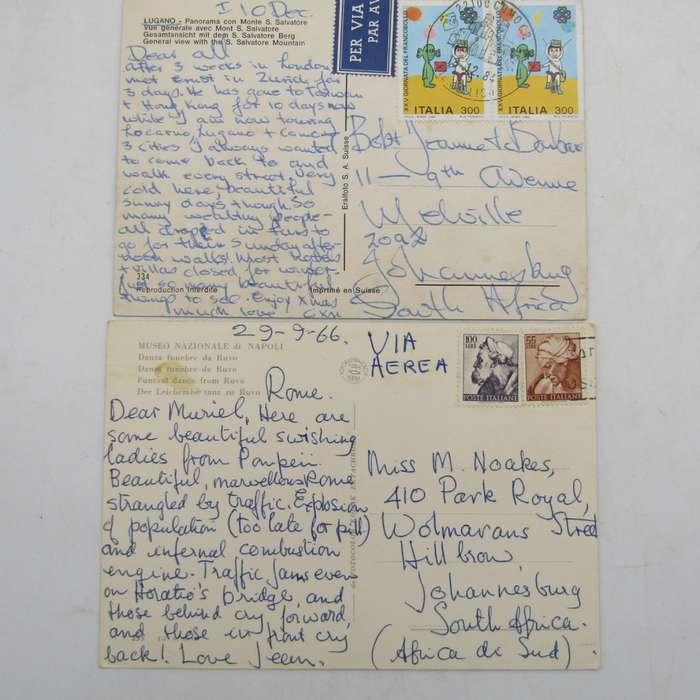 I 10 Dec.
LUGANO - Panorama con Monte S. Salvatore
Vue générale avec Mont S. Salvatore
Gesamtansicht mit dem S. Salvatore Berg
General view with the S. Salvatore Mountain
PER VIA
PAR AV
XXV GIORNATA DEL FRANCOBOLLO
ITALIA 300
XXV GIORNATA DEL FRANCOBOLLO
ITALIA 300
Dear all
after 3 weeks in London
met Ernst in Zurich for
3 days. He has gone to Taiwan
+ Hong Kong for 10 days now
while I am now touring
Locarno, Lugano +
3 cities I always wanted
to come back to and
walk every street. Very
cold here, beautiful
sunny days though. So
many wealthy people -
all dropped in furs to
go for their Sunday after-
noon walks! Most hotels
+ villas closed for winter.
Just so many beautiful
things to see. Enjoy Xmas
much love
334
Reproduction Interdite
Imprimé en Suisse
Eralfoto S. A. Suisse
Jeanne +
11 - 9th Avenue
Melville
2092
Johannesburg
South Africa
29-9-66.
MUSEO NAZIONALE di NAPOLI
Danza funebre da Ruvo
Danse funebre de Ruvo
Funeral dance from Ruvo
Der Leichenbe tanz zu Ruvo
VIA
AEREA
100 LIRE
POSTE ITALIANE
55 LIRE
POSTE ITALIANE
Rome.
Dear Muriel, Here are
some beautiful swishing
ladies from Pompeii.
Beautiful, marvellous Rome
strangled by traffic. Explosion
of population (too late for pill)
and infernal combustion
engine. Traffic jams even
on Horatio's bridge, and
those behind cry forward,
and those in front cry
back! Love Jeen.
Miss M. Noakes,
410 Park Royal,
Wolmarans Street
Hillbrow,
Johannesburg
South Africa.
(Africa de Sud)